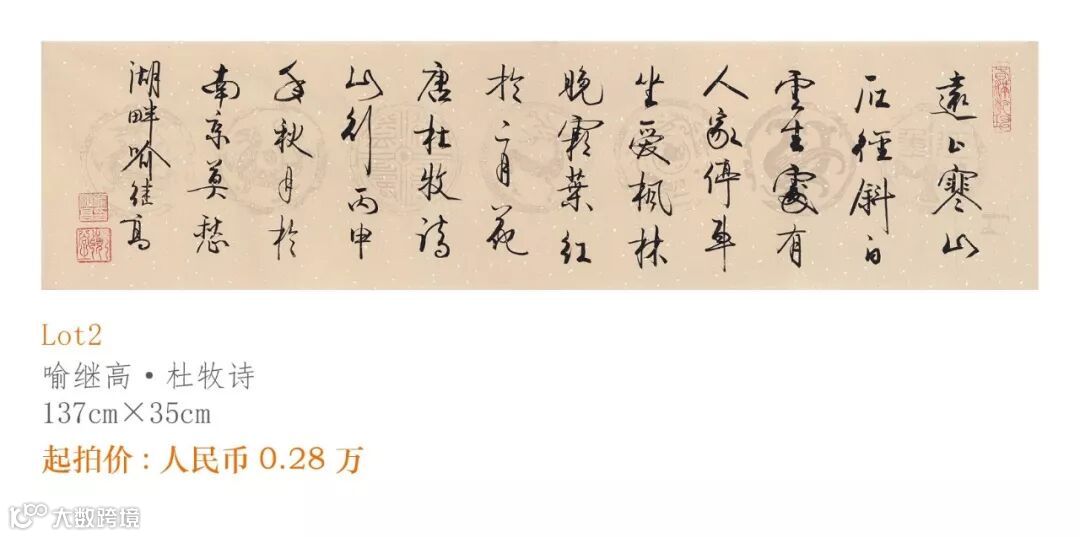 遠上寒山
石徑斜白
雲生處有
人家停車
坐愛楓林
晚霜葉紅
於二月花
唐杜牧詩
山行丙申
年秋月於
南京莫愁
湖畔喻继高
Lot2
喻继高·杜牧诗
137cm×35cm
起拍价：人民币 0.28 万
大数跨境